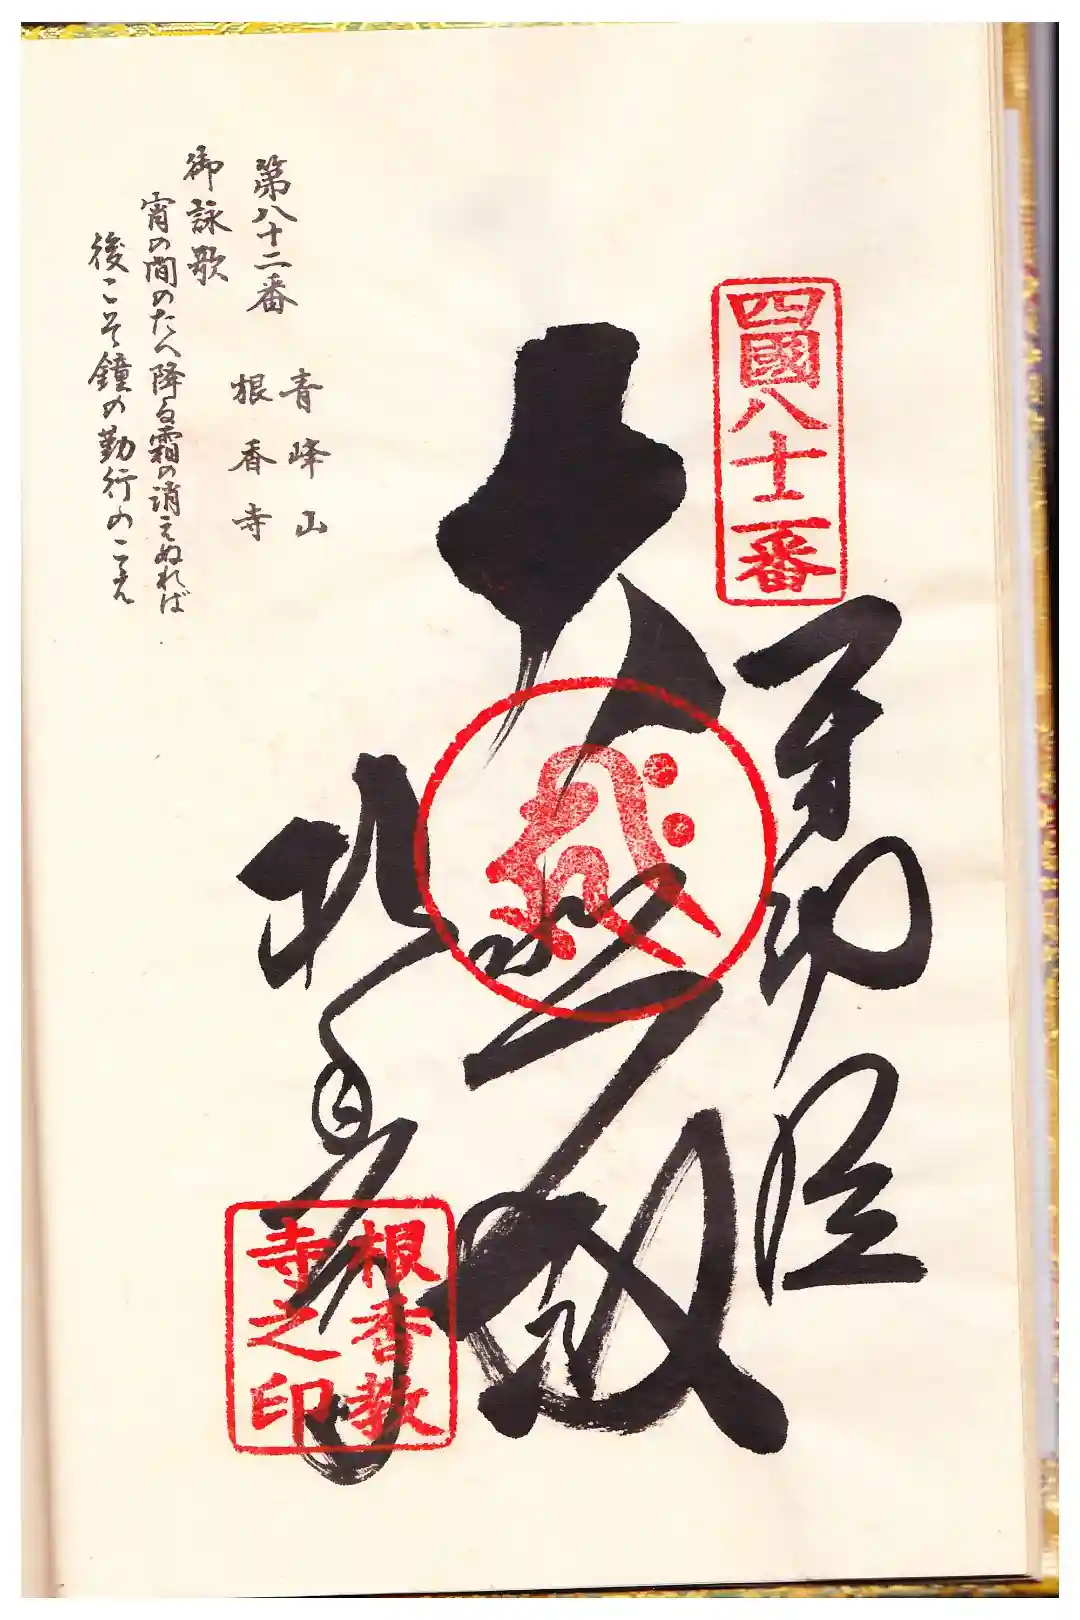 四國八十二番
奉納経
大悲殿
根香寺
根香教
寺之印
青峰山
第八十二番 根香寺
御詠歌
宵の間のたへ降る霜の消えぬれば
後こそ鐘の勤行のこえ